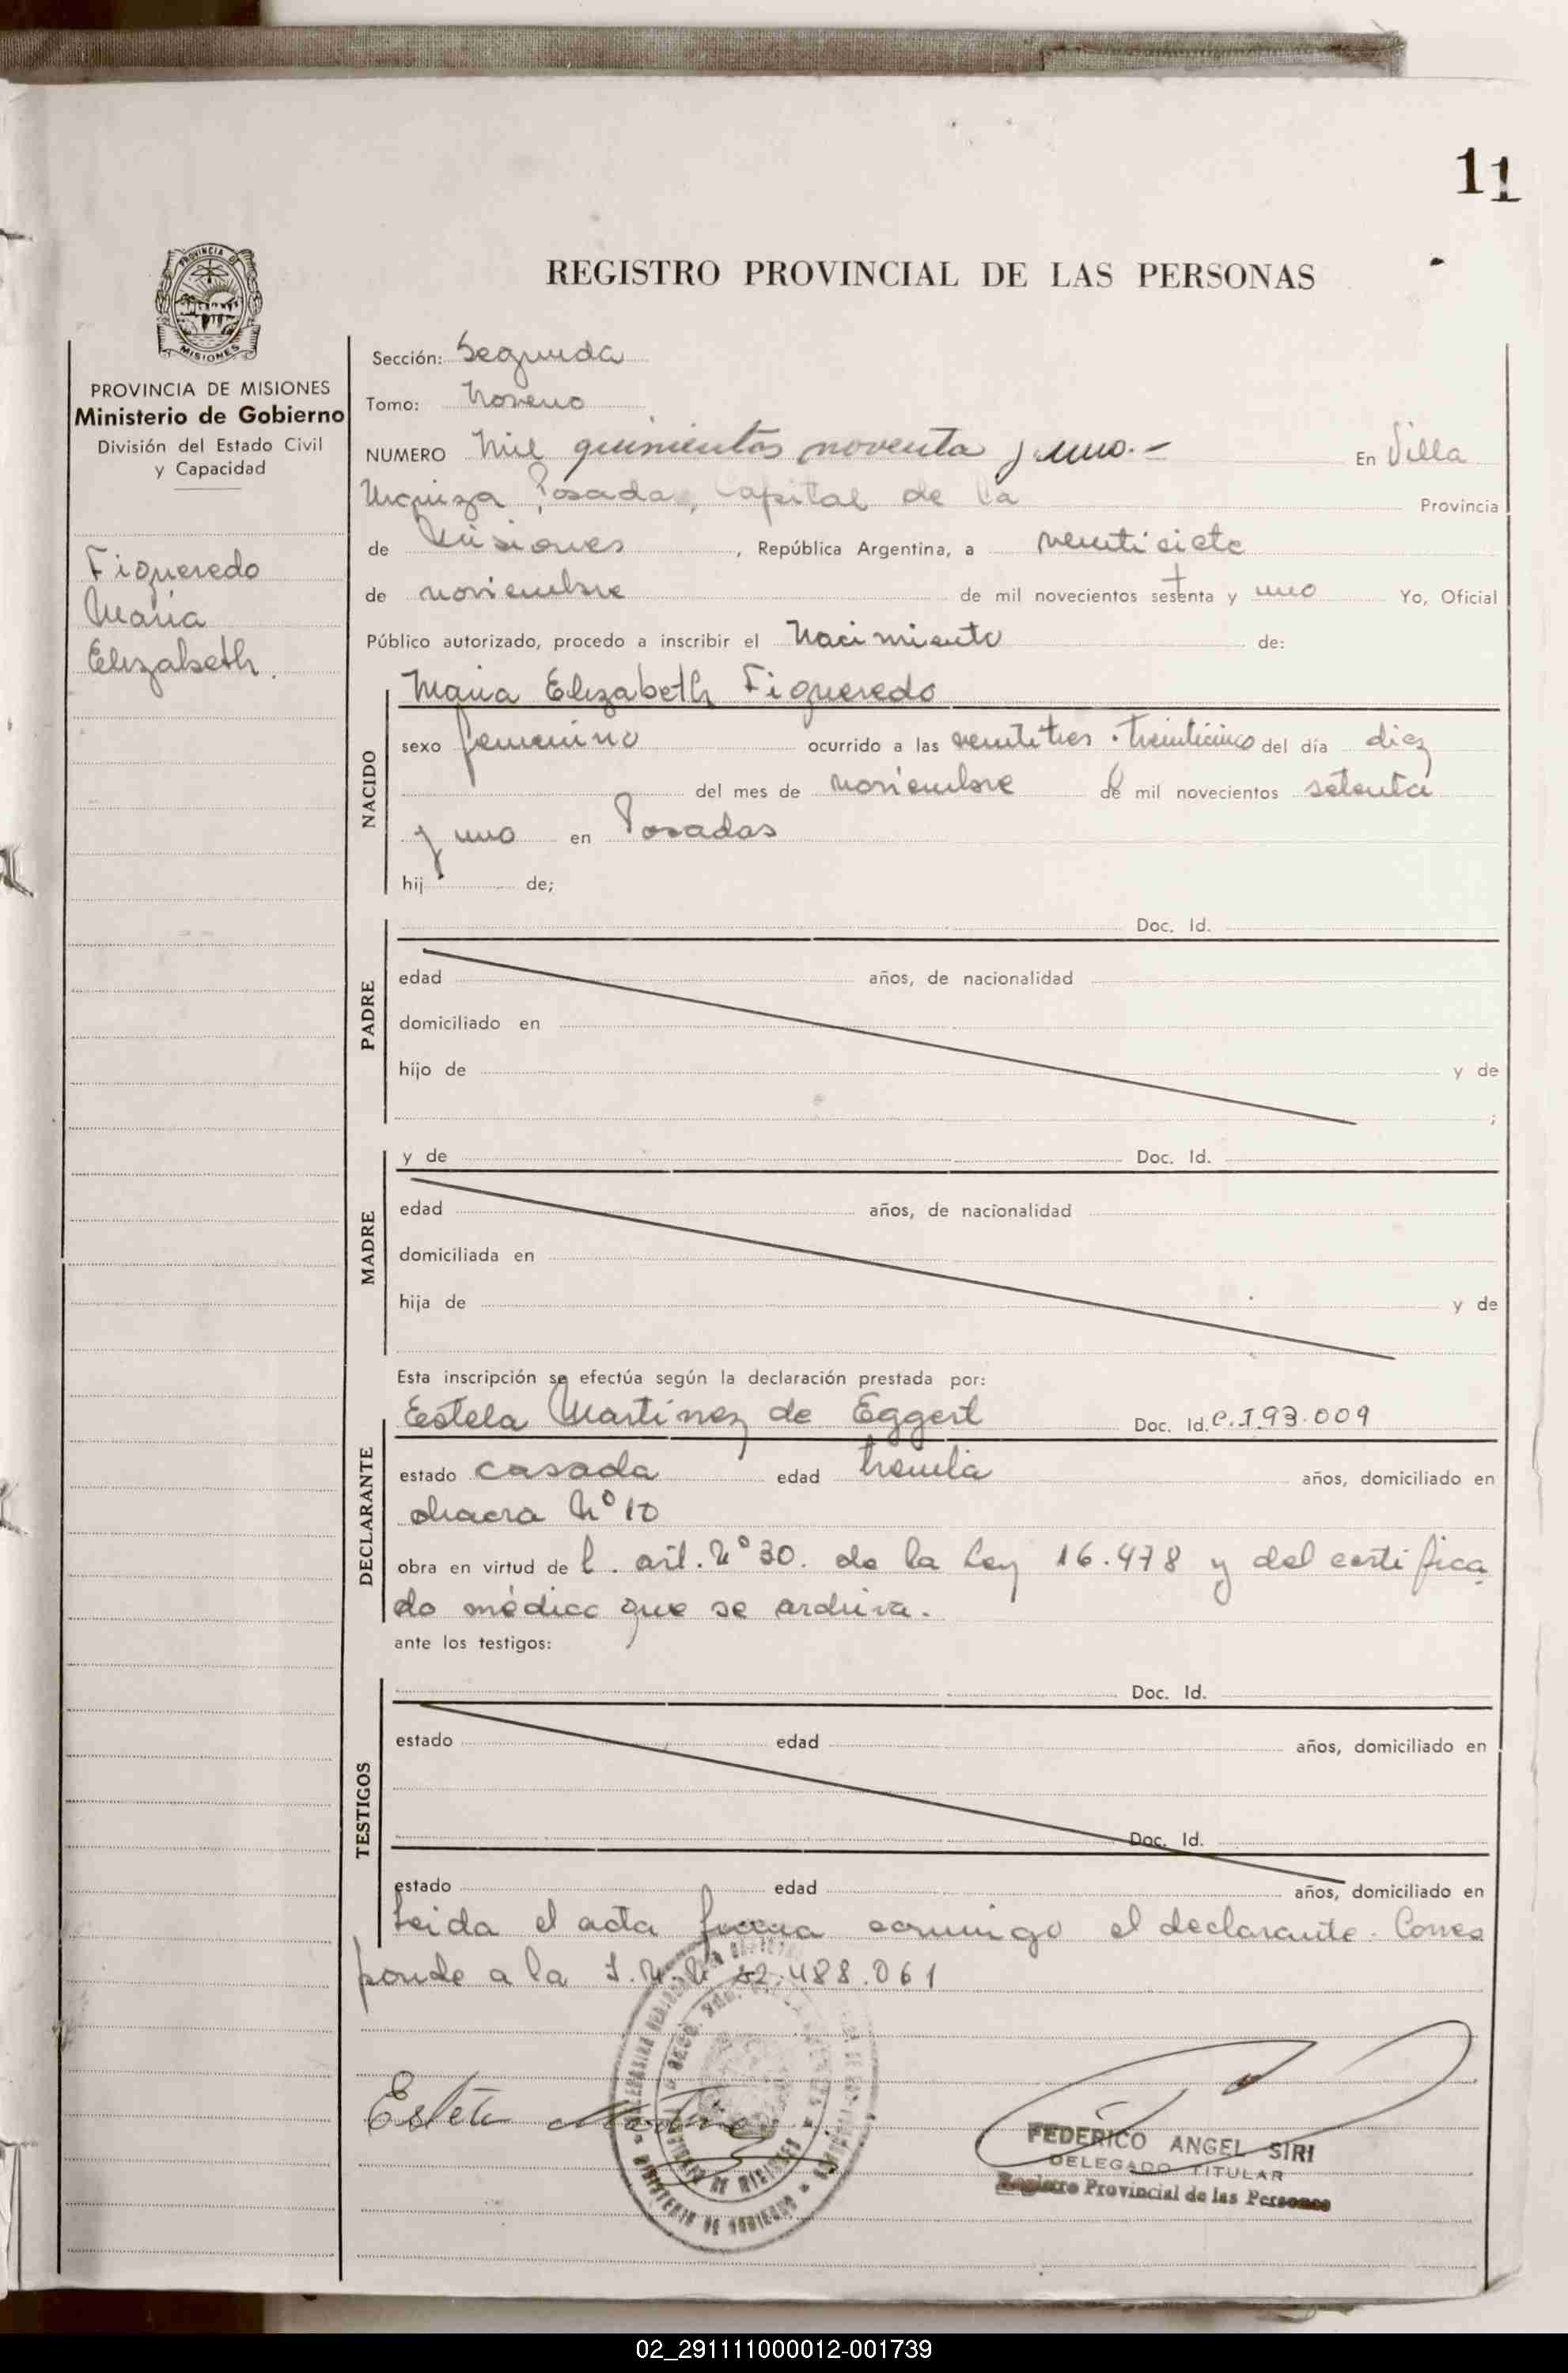 11
PROVINCIA DE
MISIONES
REGISTRO PROVINCIAL DE LAS PERSONAS
PROVINCIA DE MISIONES
Ministerio de Gobierno
División del Estado Civil
y Capacidad
Figueredo
María
Elizabeth.
Sección: Segunda
Tomo: Noveno
NUMERO Mil quinientos noventa y uno.- En Villa
Urquiza Posadas, Capital de la Provincia
de Misiones, República Argentina, a veintisiete
de noviembre de mil novecientos setenta y uno Yo, Oficial
Público autorizado, procedo a inscribir el Nacimiento de:
NACIDO
Maria Elizabeth Figueredo
sexo femenino ocurrido a las veintitres . treinticinco del día diez
del mes de noviembre de mil novecientos setenta
y uno en Posadas
hij de;
PADRE
Doc. Id.
edad años, de nacionalidad
domiciliado en
hijo de y de
;
MADRE
y de Doc. Id.
edad años, de nacionalidad
domiciliada en
hija de y de
Esta inscripción se efectúa según la declaración prestada por:
DECLARANTE
Estela Martinez de Eggert Doc. Id. C.I 93.009
estado casada edad treinta años, domiciliado en
chacra Nº 10
obra en virtud de l. art. Nº 30. de la Ley 16.478 y del certifica
do médico que se archiva.
ante los testigos:
TESTIGOS
Doc. Id.
estado edad años, domiciliado en
Doc. Id.
estado edad años, domiciliado en
Leida el acta firma conmigo el declarante. Corres
ponde a la 22.488.061
MINISTERIO DE GOBIERNO
DE MISIONES
FEDERICO ANGEL SIRI
DELEGADO TITULAR
Registro Provincial de las Personas
02_291111000012-001739